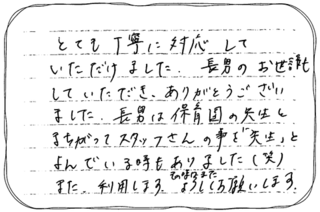 とても丁寧に対応して
いただけました。長男のお世話も
していただき、ありがとうござい
ました。長男は保育園の先生と
まちがってスタッフさんの事を"先生"と
よんでいる時もありました(笑)
また、利用します。
よろしくお願いします。